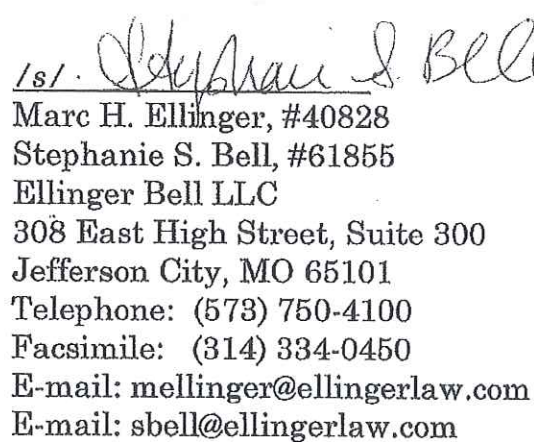 /s/. Stephanie S. Bell
Marc H. Ellinger, #40828
Stephanie S. Bell, #61855
Ellinger Bell LLC
308 East High Street, Suite 300
Jefferson City, MO 65101
Telephone: (573) 750-4100
Facsimile: (314) 334-0450
E-mail: mellinger@ellingerlaw.com
E-mail: sbell@ellingerlaw.com